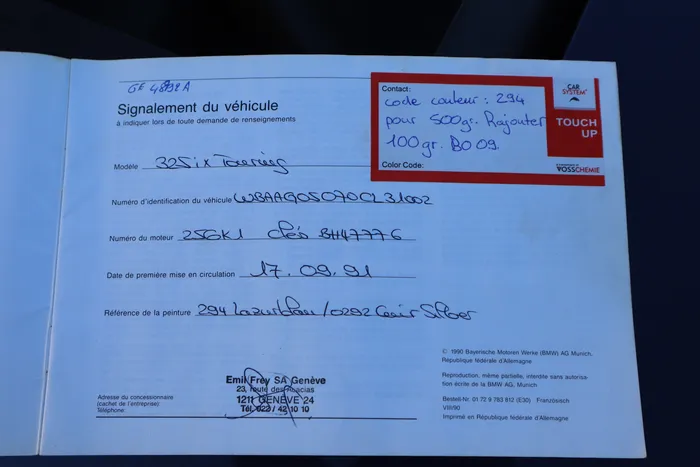 GE 4892A
Signalement du véhicule
à indiquer lors de toute demande de renseignements
Contact:
code couleur : 294
pour 500gr. Rajouter
100gr. BO 09.
Color Code:
CAR SYSTEM
TOUCH UP
VOSSCHEMIE
Modèle 325ix Touring
Numéro d'identification du véhicule WBAAG05070CL31002
Numéro du moteur 256K1 clés BH47776
Date de première mise en circulation 17.09.91
Référence de la peinture 294 Lazurblau/0292 Silber
Emil Frey SA Genève
23, route des Acacias
1211 GENÈVE 24
Tél. 022 / 42 10 10
Adresse du concessionnaire
(cachet de l'entreprise)
Téléphone
© 1990 Bayerische Motoren Werke (BMW) AG Munich,
République fédérale d'Allemagne
Reproduction, même partielle, interdite sans autorisa-
tion écrite de la BMW AG, Munich
Bestell-Nr. 01 72 9 783 812 (E30) Französisch
VIII/90
Imprimé en République fédérale d'Allemagne